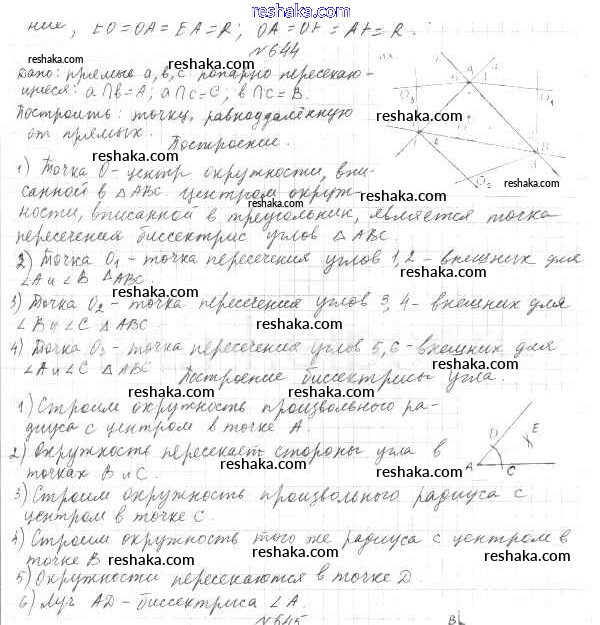 reshaka.com
них, EO=OA=EA=R; OA=OF=AF=R.
№644
Дано: прямые a, b, c попарно пересекаю-
щиеся: a∩b=A; a∩c=C; b∩c=B.
Построить: точку, равноудалённую
от прямых.
reshaka.com
Построение.
reshaka.com
1) Точка O - центр окружности, впи-
санной в △ABC. Центром окруж-
ности, вписанной в треугольник, является точка
пересечения биссектрис углов △ABC.
2) Точка O₁ - точка пересечения углов 1,2 - внешних для
∠A и ∠B △ABC.
3) Точка O₂ - точка пересечения углов 3,4 - внешних для
∠B и ∠C △ABC.
4) Точка O₃ - точка пересечения углов 5,6 - внешних для
∠A и ∠C △ABC.
Построение биссектрисы угла.
1) Строим окружность произвольного ра-
диуса с центром в точке A.
2) Окружность пересекает стороны угла в
точках B и C.
3) Строим окружность произвольного радиуса с
центром в точке C.
4) Строим окружность того же радиуса с центром в
точке B
5) Окружности пересекаются в точке D.
6) Луч AD - биссектриса ∠A.
reshaka.com
№645